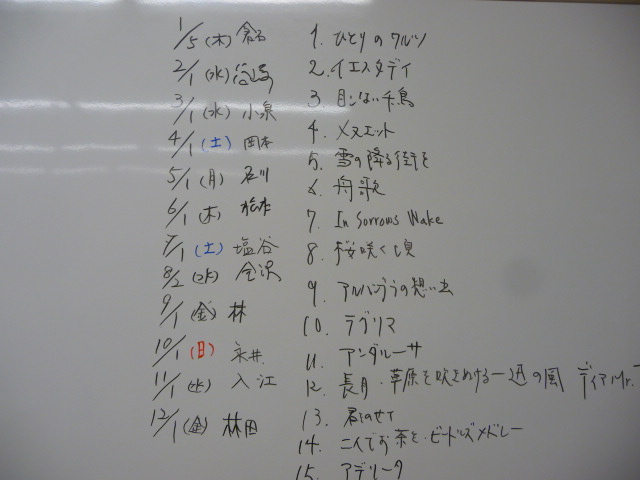 1/5 (木) 倉石
2/1 (水)
3/1 (水) 小泉
4/1 (土) 岡本
5/1 (月) 石川
6/1 (木) 松本
7/1 (土) 塩谷
8/2 (水) 金沢
9/1 (金) 林
10/1 (日) 永井
11/1 (水) 入江
12/1 (金) 林田
1. ひとりのワルツ
2. イエスタデイ
3 浜千鳥
4. メヌエット
5. 雪の降る街を
6. 舟歌
7. In Sorrows Wake
8. 桜咲く頃
9. アルハンブラの想い出
10. ラグリマ
11. アンダルーサ
12. 長月・草原を吹きぬける一迅の風 ディアMr.
13. 君をのせて
14. 二人でお茶を・ビートルズメドレー
15. アデリータ